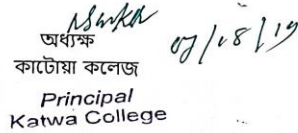 07/08/19
অধ্যক্ষ
কাটোয়া কলেজ
Principal
Katwa College